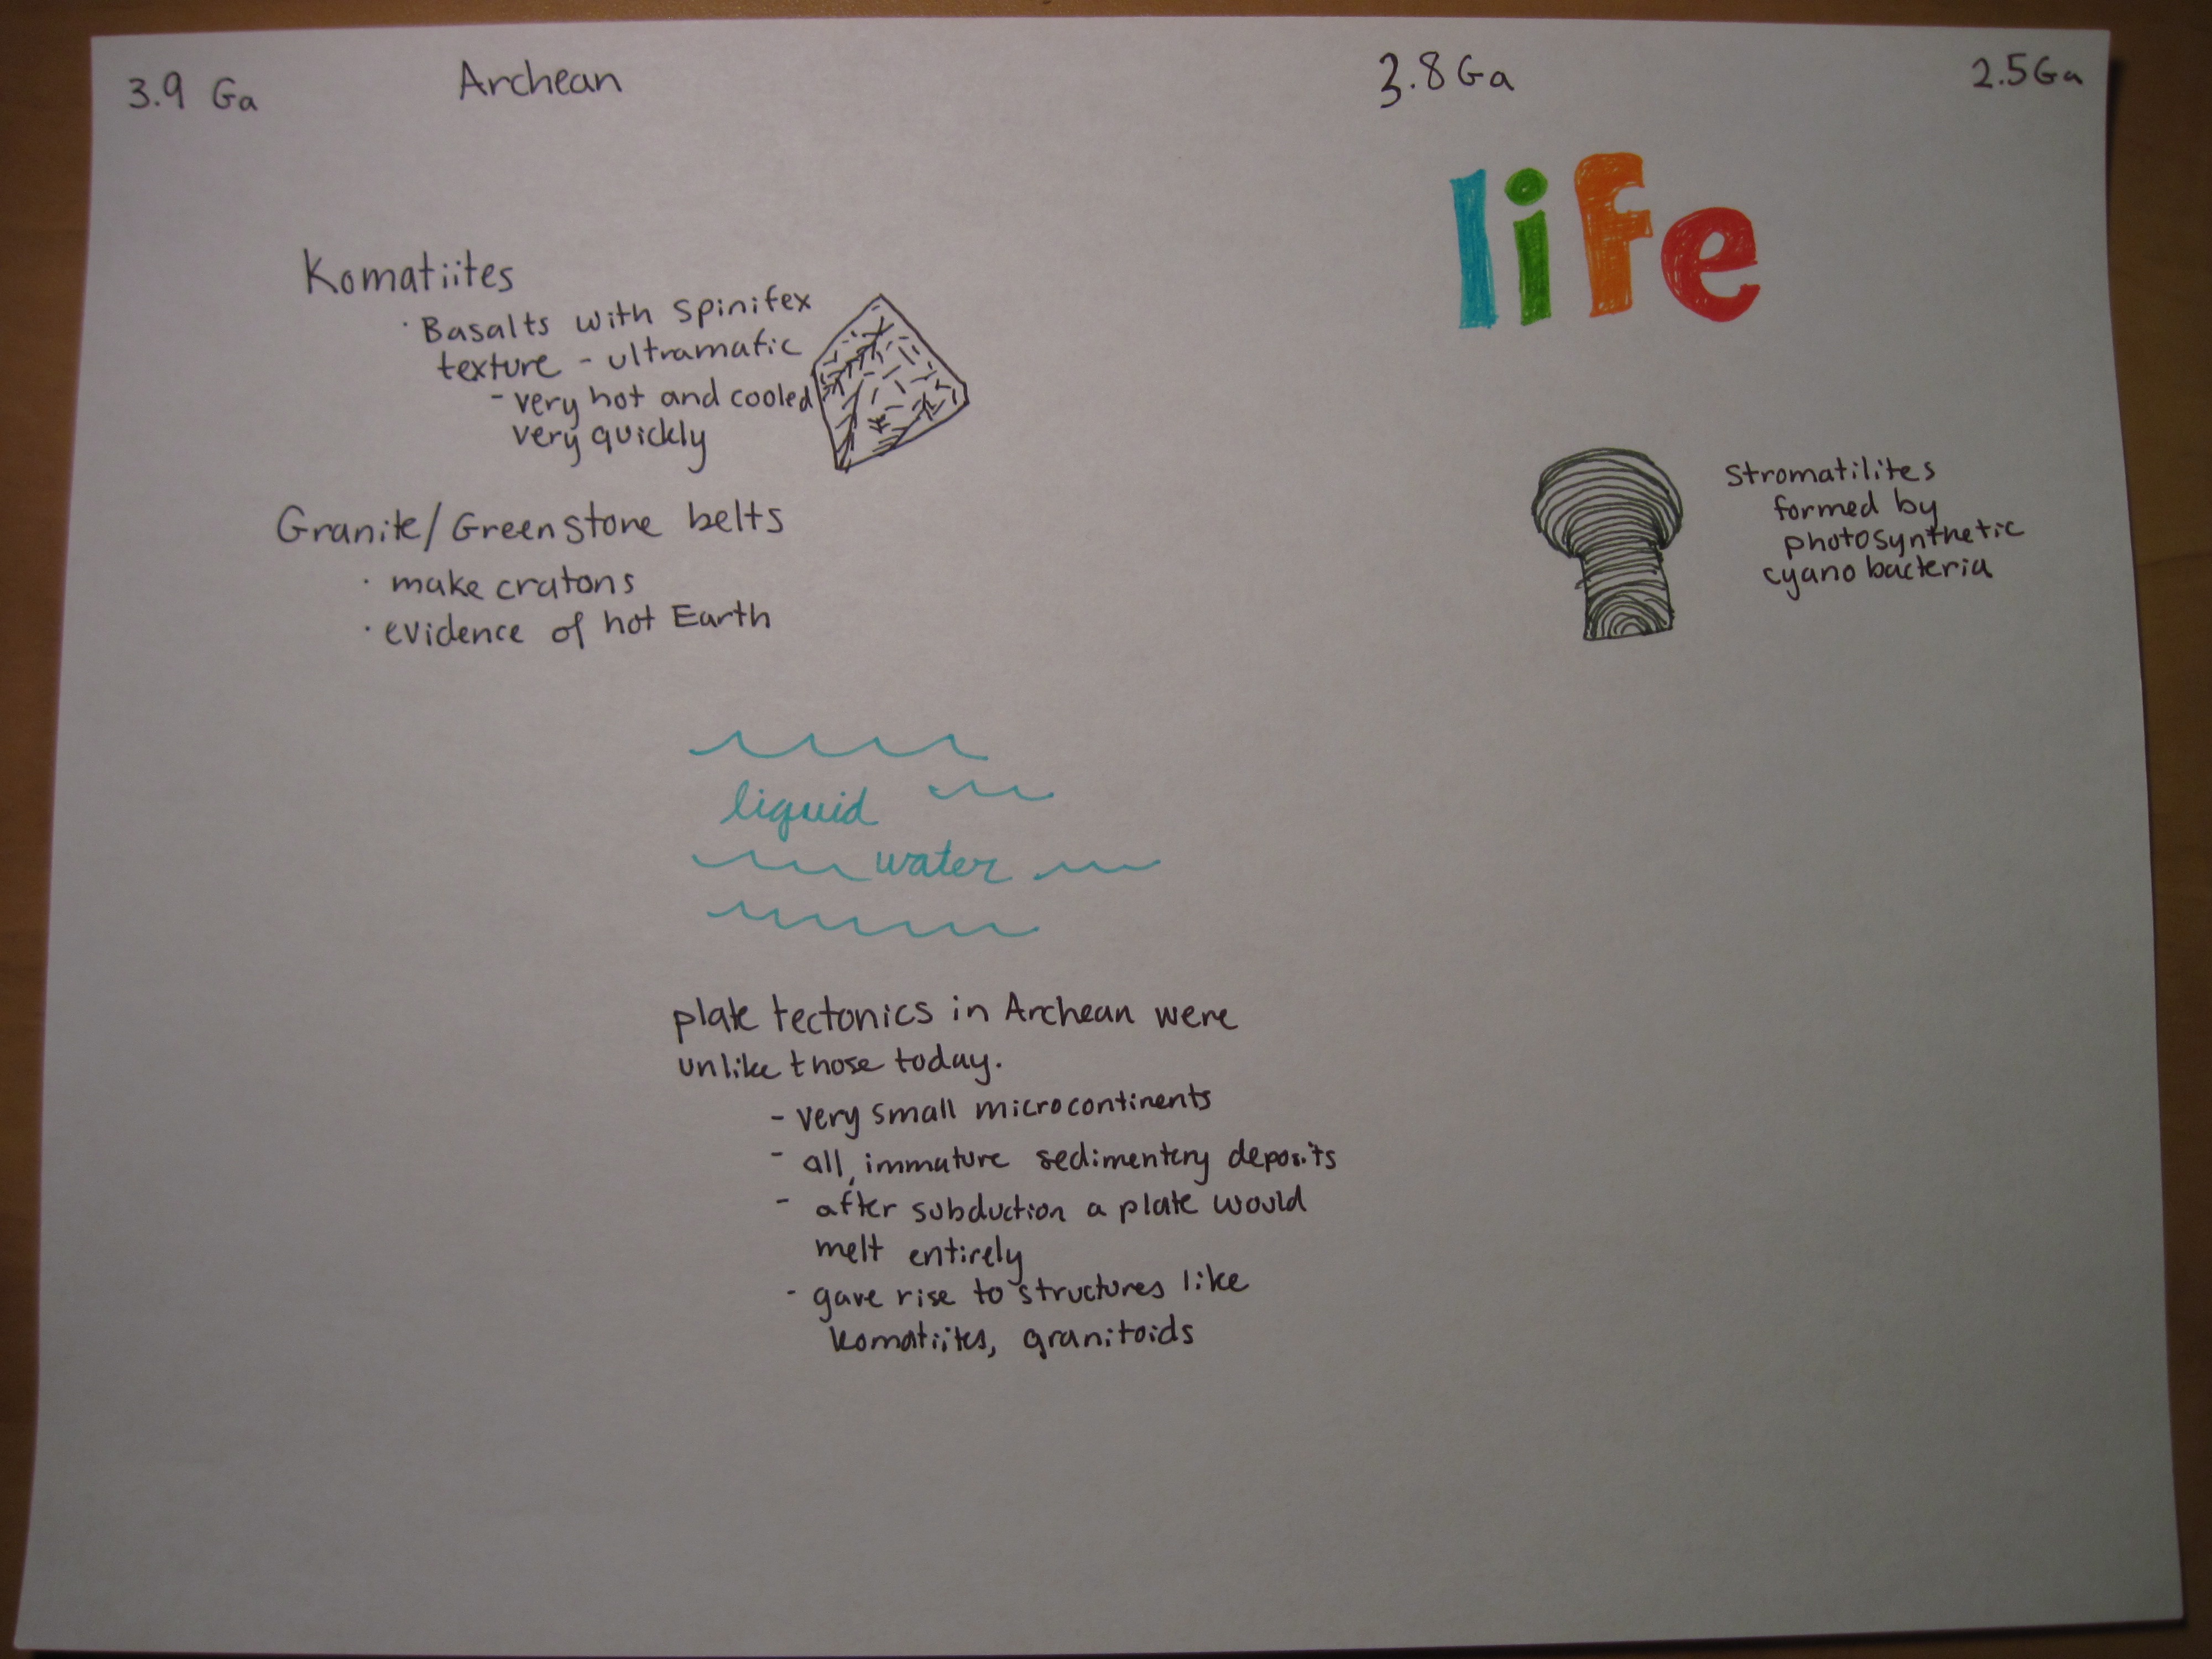 3.9 Ga Archean 3.8 Ga 2.5 Ga
life
Komatiites
· Basalts with spinifex
texture - ultramafic
- very hot and cooled
very quickly
Granite/Greenstone belts
· make cratons
· evidence of hot Earth
Stromatilites
formed by
photosynthetic
cyanobacteria
liquid
water
plate tectonics in Archean were
unlike those today.
- very small microcontinents
- all, immature sedimentery deposits
- after subduction a plate would
melt entirely
- gave rise to structures like
komatiites, granitoids